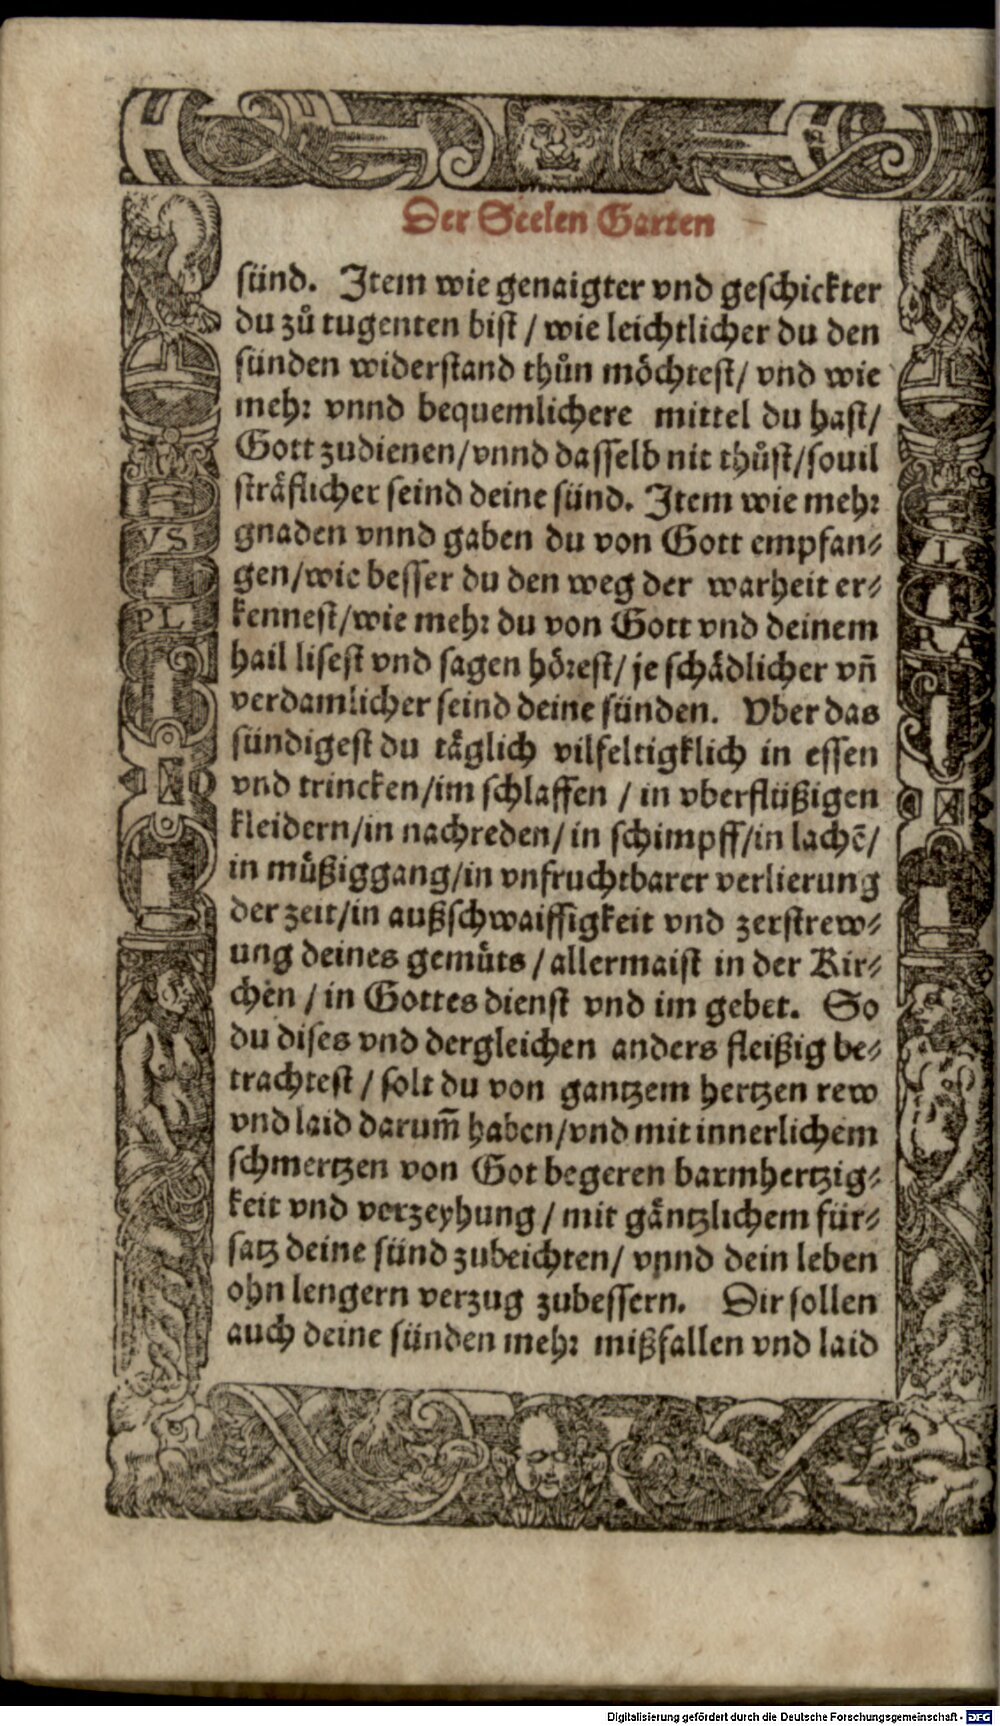 Der Seelen Garten
sünd. Item wie genaigter vnd geschickter
du zů tugenten bist / wie leichtlicher du den
sünden widerstand thůn möchtest / vnd wie
mehr vnnd bequemlichere mittel du hast /
Gott zudienen / vnnd dasselb nit thůst / souil
sträflicher seind deine sünd. Item wie mehr
gnaden vnnd gaben du von Gott empfan⸗
gen / wie besser du den weg der warheit er⸗
kennest / wie mehr du von Gott vnd deinem
hail lisest vnd sagen hörest / je schädlicher vñ
verdamlicher seind deine sünden. Vber das
sündigest du täglich vilfeltigklich in essen
vnd trincken / im schlaffen / in vberflüßigen
kleidern / in nachreden / in schimpff / in lachẽ /
in müßiggang / in vnfruchtbarer verlierung
der zeit / in außschwaiffigkeit vnd zerstrew⸗
ung deines gemüts / allermaist in der Kir⸗
chen / in Gottes dienst vnd im gebet. So
du dises vnd dergleichen anders fleißig be⸗
trachtest / solt du von gantzem hertzen rew
vnd laid darum̃ haben / vnd mit innerlichem
schmertzen von Got begeren barmhertzig⸗
keit vnd verzeyhung / mit gäntzlichem für⸗
satz deine sünd zubeichten / vnnd dein leben
ohn lengern verzug zubessern. Dir sollen
auch deine sünden mehr mißfallen vnd laid
VS
PL
L
RA
Digitalisierung gefördert durch die Deutsche Forschungsgemeinschaft - DFG